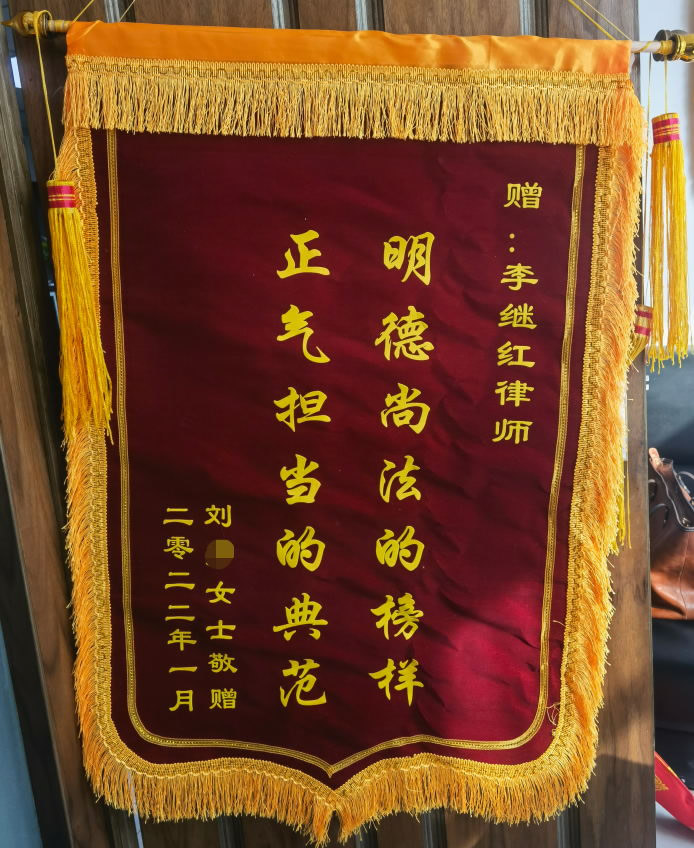 赠：李继红律师
明德尚法的榜样
正气担当的典范
刘 女士敬赠
二零二二年一月